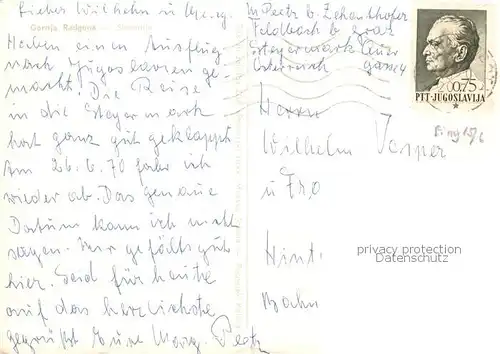 Lieber Wilhelm u.
Gornja Radgona
Haben einen Ausflug
nach Jugoslawien ge-
macht. Die Reise
in die Steyermark
hat ganz gut geklappt
Am 26.6.70 fahr ich
wieder ab. Das genaue
Datum kann ich nicht
sagen. gefällts gut
hier. Seid für heute
auf das herzlichste
gegrüßt Eure Marg. Peetz
M Peetz b. Zehenthofer
Feldbach b. Graz
Steyermark
Österreich
0.75
PTT-JUGOSLAVIJA
Herrn
Wilhelm Vesper
u Fro
Hint.
Bahn
privacy protection
Datenschutz